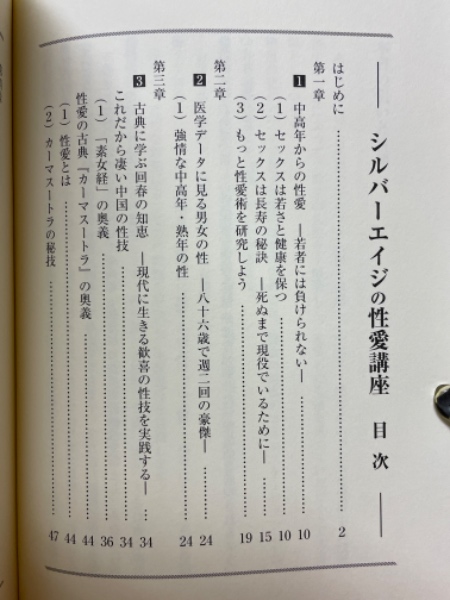 シルバーエイジの性愛講座 目次
はじめに 2
第一章
1 中高年からの性愛 ―若者には負けられない― 10
(1) セックスは若さと健康を保つ 10
(2) セックスは長寿の秘訣 ―死ぬまで現役でいるために― 15
(3) もっと性愛術を研究しよう 19
第二章
2 医学データに見る男女の性 ―八十六歳で週二回の豪傑― 24
(1) 強情な中高年・熟年の性 24
第三章
3 古典に学ぶ回春の知恵 ―現代に生きる歓喜の性技を実践する― 34
これだから凄い中国の性技 34
(1) 「素女経」の奥義 36
性愛の古典『カーマスートラ』の奥義 44
(1) 性愛とは 44
(2) カーマスートラの秘技 47